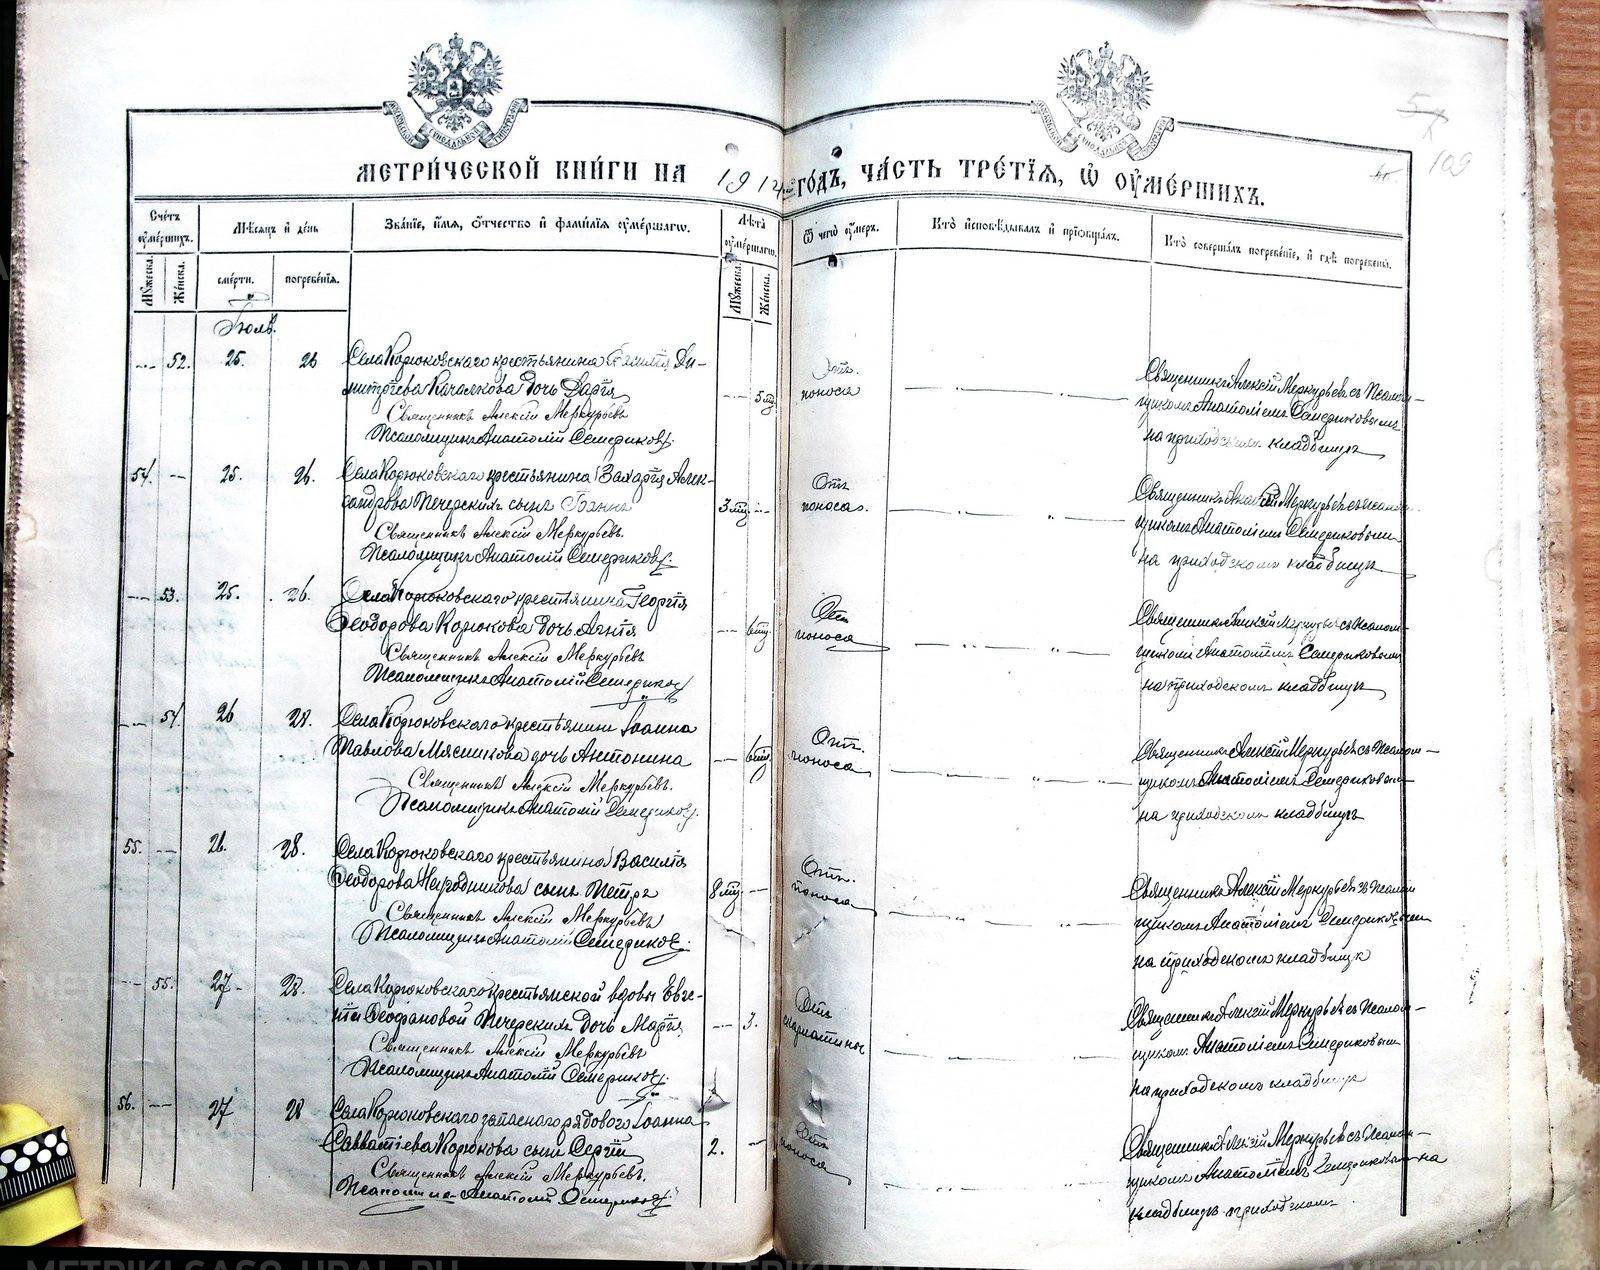 МЕТРИ́ЧЕСКОЙ КНИ́ГИ НА 1914 ГО́ДЪ, ЧА́СТЬ ТРЕ́ТЇѦ, Ѿ ОУМЕ́РШИХЪ.
109
Сче́тъ оуме́ршихъ.
Мѣ́сяцъ и де́нь
Зва́нїе, и́мя, ѻ́тчество и фами́лїя оуме́ршагѡ.
Лѣ́та оуме́ршагѡ.
Ѿ чегѡ̀ оу́меръ.
Кто̀ и̓сповѣ́дывалъ и̓ прїѡбща́лъ.
Кто̀ соверша́лъ погребе́нїе, и̓ гдѣ̀ погребены̀.
Мꙋ́жеска.
Же́нска.
сме́рти.
погребе́нїя.
Мꙋ́жеска.
Же́нска.
Іюль.
52. 25. 26 Села Корюковскаго крестьянина Василія Ди-
митріева Качалкова дочь Дарія 5 мц.
Священникъ Алексій Меркурьевъ
Псаломщикъ Анатолій Семериковъ.
Отъ
поноса
Священникъ Алексій Меркурьевъ съ псалом-
щикомъ Анатоліемъ Семериковымъ
на приходскомъ кладбищѣ
54. 25. 26. Села Корюковскаго крестьянина Захарія Алек-
сандрова Печерскихъ сынъ Іоаннъ 3 мц.
Священникъ Алексій Меркурьевъ.
Псаломщикъ Анатолій Семериковъ.
Отъ
поноса.
Священникъ Алексій Меркурьевъ съ псалом-
щикомъ Анатоліемъ Семериковымъ
на приходскомъ кладбищѣ
53. 25. 26. Села Корюковскаго крестьянина Георгія
Ѳеодорова Корюкова дочь Агнія 6 мц.
Священникъ Алексій Меркурьевъ
Псаломщикъ Анатолій Семериковъ
Отъ
поноса
Священникъ Алексій Меркурьевъ съ псалом-
щикомъ Анатоліемъ Семериковымъ
на приходскомъ кладбищѣ
54. 26 28. Села Корюковскаго крестьянина Іоанна
Павлова Мясникова дочь Антонина 6 мц.
Священникъ Алексій Меркурьевъ.
Псаломщикъ Анатолій Семериковъ.
Отъ
поноса
Священникъ Алексій Меркурьевъ съ псалом-
щикомъ Анатоліемъ Семериковымъ
на приходскомъ кладбищѣ
55. 26. 28. Села Корюковскаго крестьянина Василія
Ѳеодорова сынъ Петръ 8 мц.
Священникъ Алексій Меркурьевъ
Псаломщикъ Анатолій Семериковъ.
Отъ
поноса
Священникъ Алексій Меркурьевъ съ псалом-
щикомъ Анатоліемъ Семериковымъ
на приходскомъ кладбищѣ
55. 27 28. Села Корюковскаго крестьянской вдовы Евге-
ніи Ѳеофановой Печерскихъ дочь Марія 3.
Священникъ Алексій Меркурьевъ
Псаломщикъ Анатолій Семериковъ.
Отъ
скарлатины
Священникъ Алексій Меркурьевъ съ псалом-
щикомъ Анатоліемъ Семериковымъ
на приходскомъ кладбищѣ
56. 27 28 Села Корюковскаго запаснаго рядового Іоанна
Савватіева Корюкова сынъ Сергій 2.
Священникъ Алексій Меркурьевъ.
Псаломщикъ Анатолій Семериковъ.
Отъ
поноса
Священникъ Алексій Меркурьевъ съ псалом-
щикомъ Анатоліемъ Семериковымъ на
кладбищѣ приходскомъ